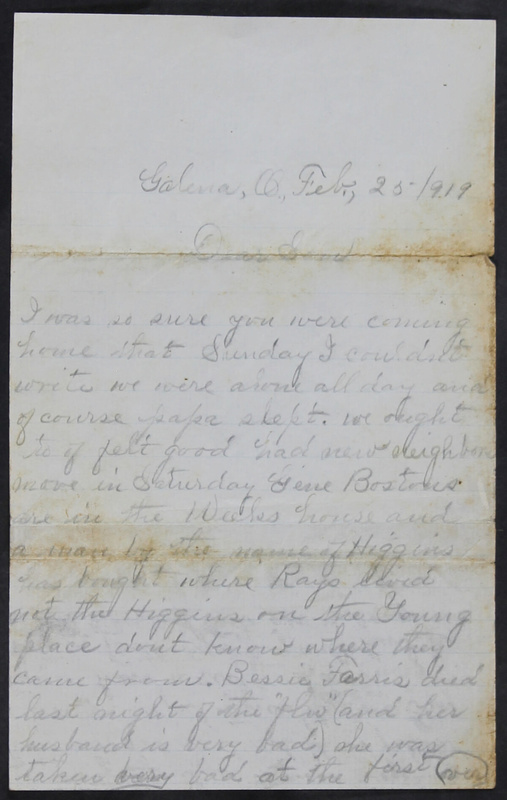 Galena, O., Feb., 25 1919
Dear
I was so sure you were coming
home that Sunday I couldnt
write we were alone all day and
of course papa slept. we ought
to of felt good had new neighbors
move in Saturday Gene Bostons
are in the Weeks house and
a man by the name of Higgins
has bought where Rays lived
not the Higgins on the Young
place dont know where they
came from. Bessie Farris died
last night of the "flu" (and her
husband is very bad) she was
taken very bad at the first over